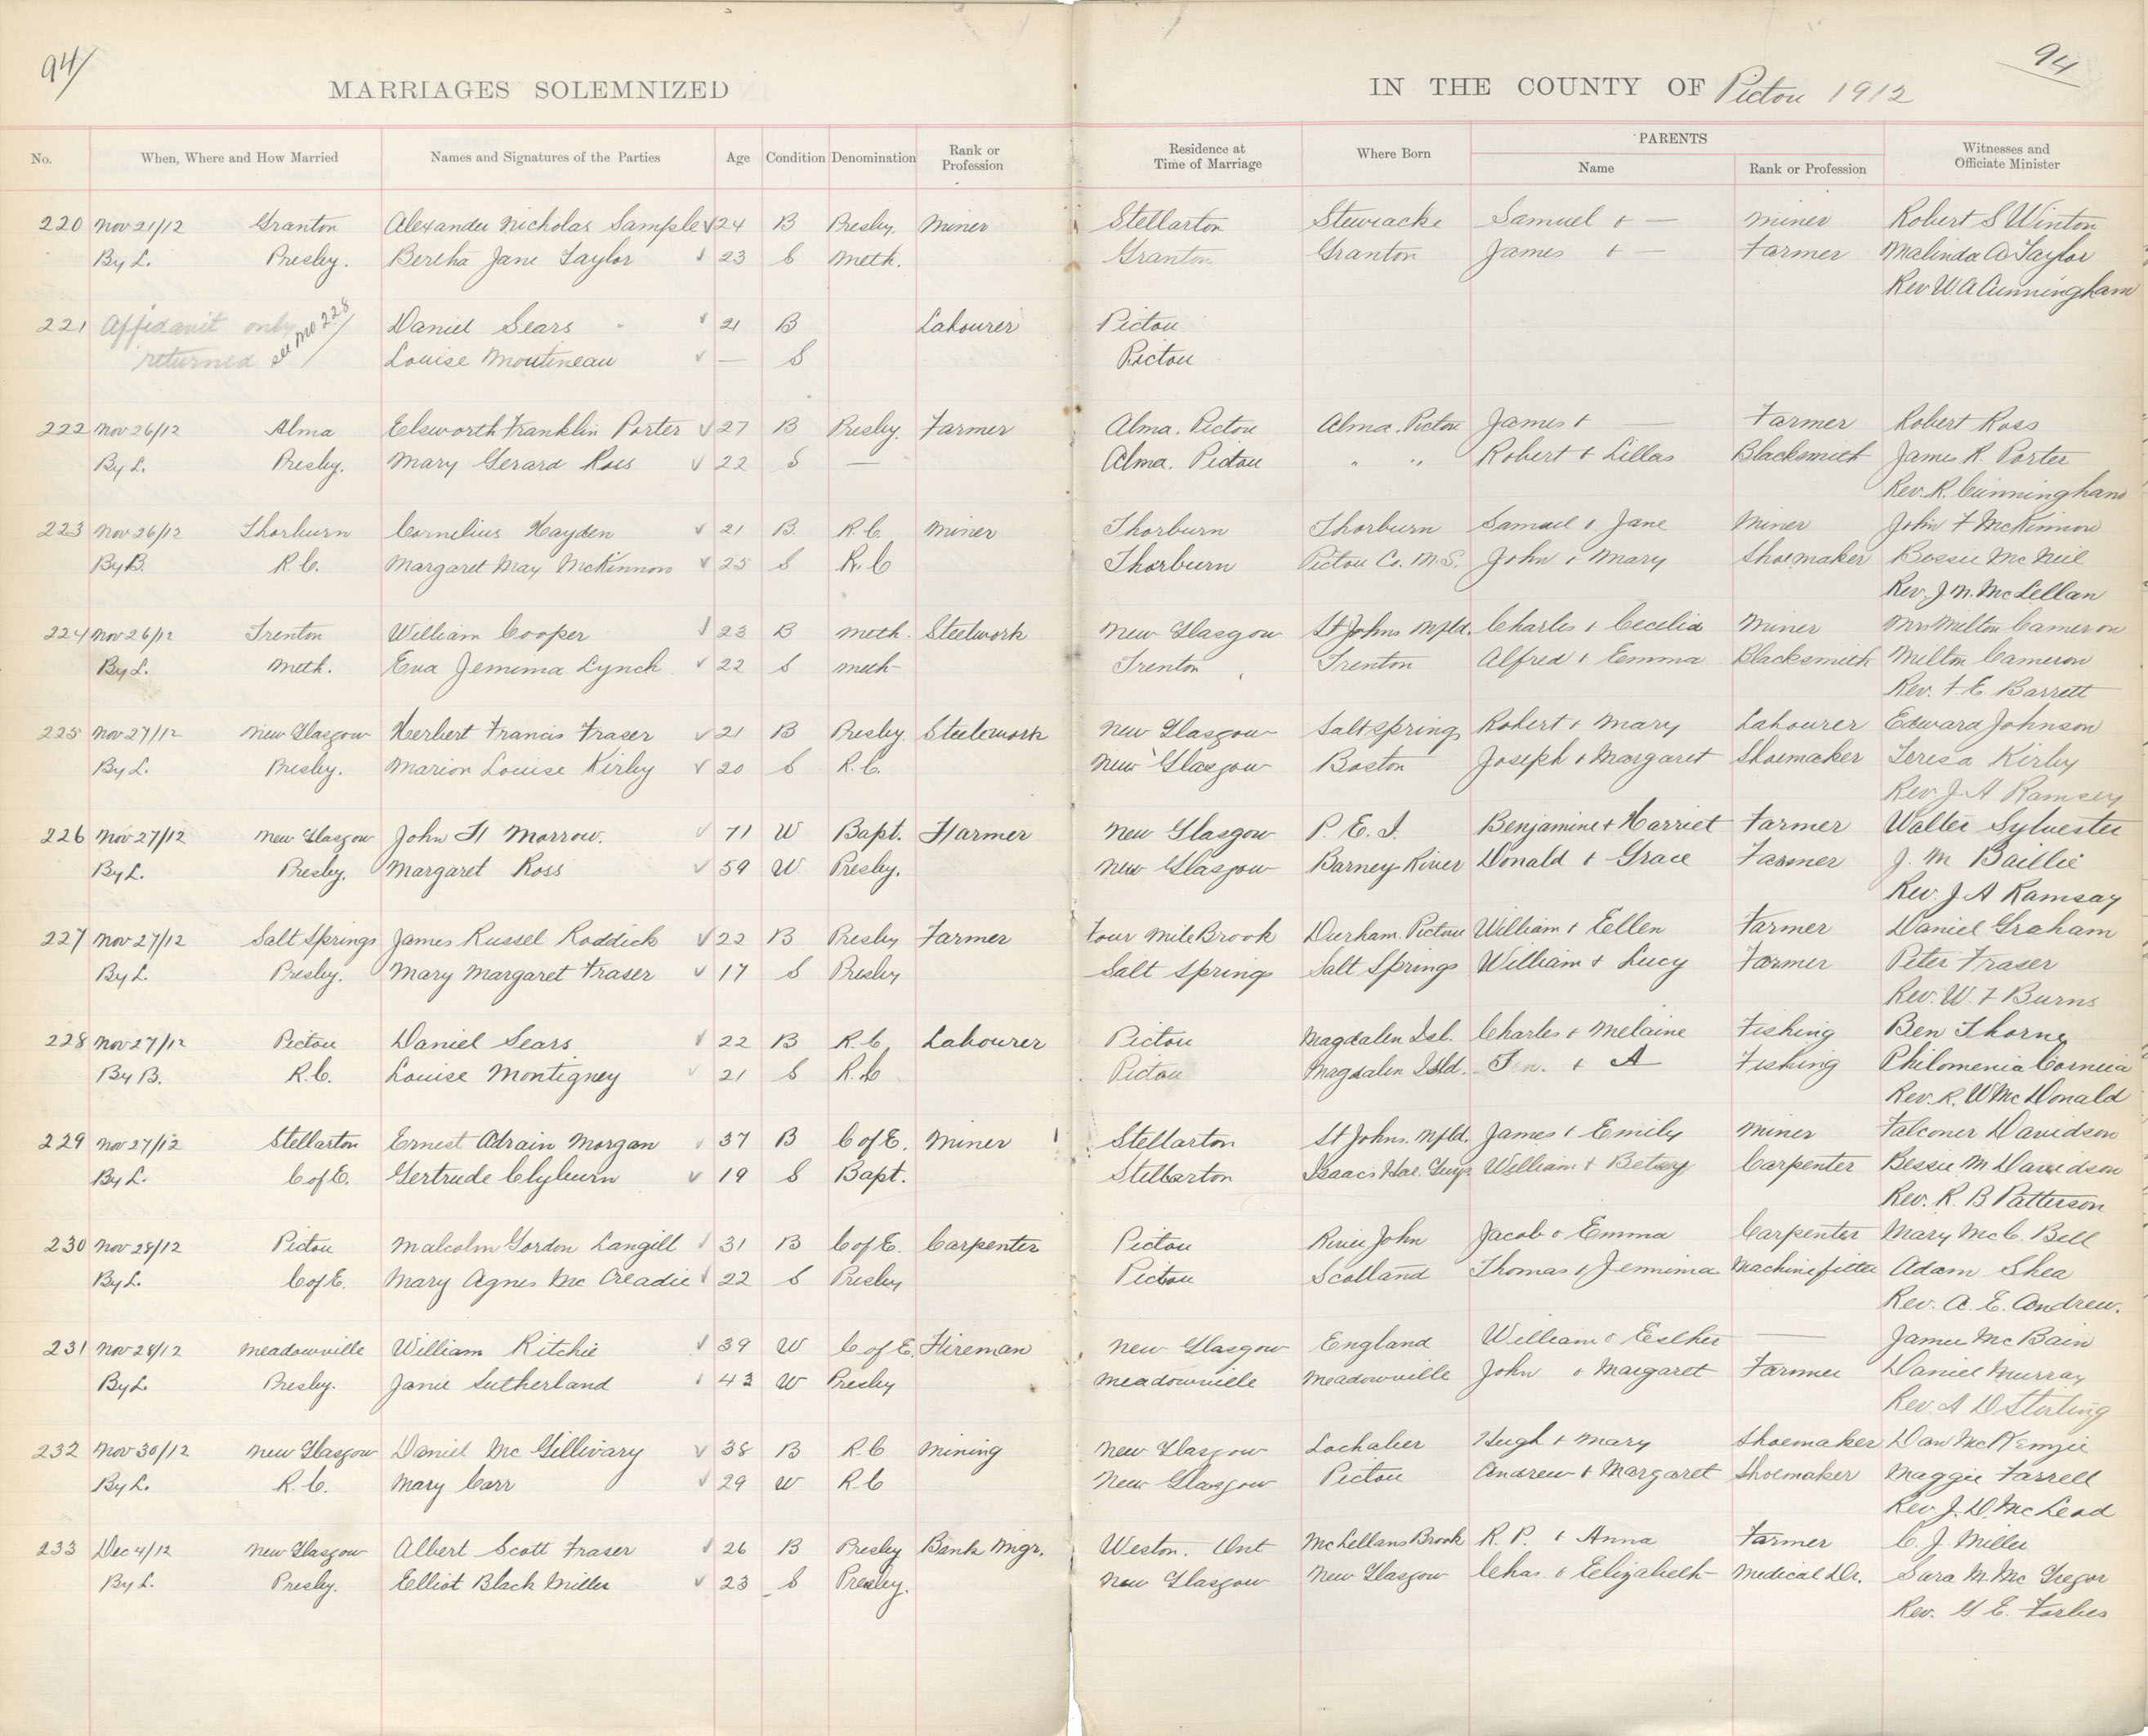 94/
94
MARRIAGES SOLEMNIZED IN THE COUNTY OF Pictou 1912
No. When, Where and How Married Names and Signatures of the Parties Age Condition Denomination Rank or Profession Residence at Time of Marriage Where Born PARENTS Name Rank or Profession Witnesses and Officiate Minister
220 Nov 21/12 Granton Alexander Nicholas Sample 24 B Presby. Miner Stellarton Stewiacke Samuel + — Miner Robert S Winton
By L. Presby. Bertha Jane Taylor 23 S Meth. Granton Granton James + — Farmer Malinda A Taylor
Rev W. A Cunningham
221 Affidavit only see No 228/ Daniel Sears 21 B Labourer Pictou
returned Louise Moutineau — S Pictou
222 Nov 26/12 Alma Elsworth Franklin Porter 27 B Presby. Farmer Alma. Pictou Alma. Pictou James + — Farmer Robert Ross
By L. Presby. Mary Gerard Ross 22 S — Alma. Pictou " " Robert + Lillas Blacksmith James R. Porter
Rev. R. Cunningham
223 Nov 26/12 Thorburn Cornelius Hayden 21 B. R.C. Miner Thorburn Thorburn Samuel + Jane Miner John F McKinnon
By B. R.C. Margaret May McKinnon 25 S R.C Thorburn Pictou Co. N.S. John + Mary Shoemaker Bessie McNeil
Rev. J. N. McLellan
224 Nov 26/12 Trenton William Cooper 23 B Meth. Steelwork New Glasgow St Johns Nfld. Charles + Cecilia Miner Mrs Milton Cameron
By L. Meth. Eva Jemima Lynch 22 S Meth Trenton Trenton Alfred + Emma Blacksmith Milton Cameron
Rev. F E. Barrett
225 Nov 27/12 New Glasgow Herbert Francis Fraser 21 B Presby. Steelework New Glasgow Saltsprings Robert + Mary Labourer Edward Johnson
By L. Presby. Marion Louise Kirby 20 S R.C. New Glasgow Boston Joseph + Margaret Shoemaker Teresa Kirby
Rev J. A Ramsey
226 Nov 27/12 New Glasgow John H Morrow. 71 W Bapt. Farmer New Glasgow P. E. I. Benjamine + Harriet Farmer Walter Sylvester
By L. Presby. Margaret Ross 59 W. Presby. New Glasgow Barney River Donald + Grace Farmer J. M Baillie
Rev. J A Ramsay
227 Nov 27/12 Salt Springs James Russel Roddick 22 B Presby Farmer Four Mile Brook Durham. Pictou William + Ellen Farmer Daniel Graham
By L. Presby. Mary Margaret Fraser 17 S Presby Salt Springs Salt Springs William + Lucy Farmer Peter Fraser
Rev. W. F Burns
228 Nov 27/12 Pictou Daniel Sears 22 B R.C. Labourer Pictou Magdalen Isl. Charles + Melaine Fishing Ben Thorne
By B. R.C. Louise Montigney 21 S R.C Pictou Magdalen Isld. + A Fishing Philomenia
Rev. R. W McDonald
229 Nov 27/12 Stellarton Ernest Adrain Morgan 37 B C of E. Miner Stellarton St Johns. Nfld. James + Emily Miner Falconer Davidson
By L. C of E. Gertrude Clyburn 19 S Bapt. Stellarton Isaacs Har. Guys William + Betsey Carpenter Bessie M Davidson
Rev. R. B Patterson
230 Nov 28/12 Pictou Malcolm Gordon Langill 31 B C of E. Carpenter Pictou River John Jacob + Emma Carpenter Mary McC. Bell
By L. C of E. Mary Agnes Mc Creadie 22 S Presby Pictou Scotland Thomas + Jemmima Machinefitter Adam Shea
Rev. A. E. Andrew.
231 Nov 28/12 Meadowville William Ritchie 39 W C of E. Fireman New Glasgow England William + Esther — James McBain
By L. Presby. Janie Sutherland 43 W Presby Meadowville Meadowville John + Margaret Farmer Daniel Murray
Rev. A D Sterling
232 Nov 30/12 New Glasgow Daniel Mc Gillivary 38 B R.C Mining New Glasgow Lochaber Hugh + Mary Shoemaker Dan McKenzie
By L. R.C. Mary Carr 29 W R.C New Glasgow Pictou Andrew + Margaret Shoemaker Maggie Farrell
Rev J. D. McLeod
233 Dec 4/12 New Glasgow Albert Scott Fraser 26 B Presby Bank Mgr. Weston. Ont McLellans Brook R. P. + Anna Farmer C. J. Miller
By L. Presby. Elliot Black Miller 23 S Presby. New Glasgow New Glasgow Chas. + Elizabeth Medical Dr. Sara M. Mc Gregor
Rev. G. E. Forbes